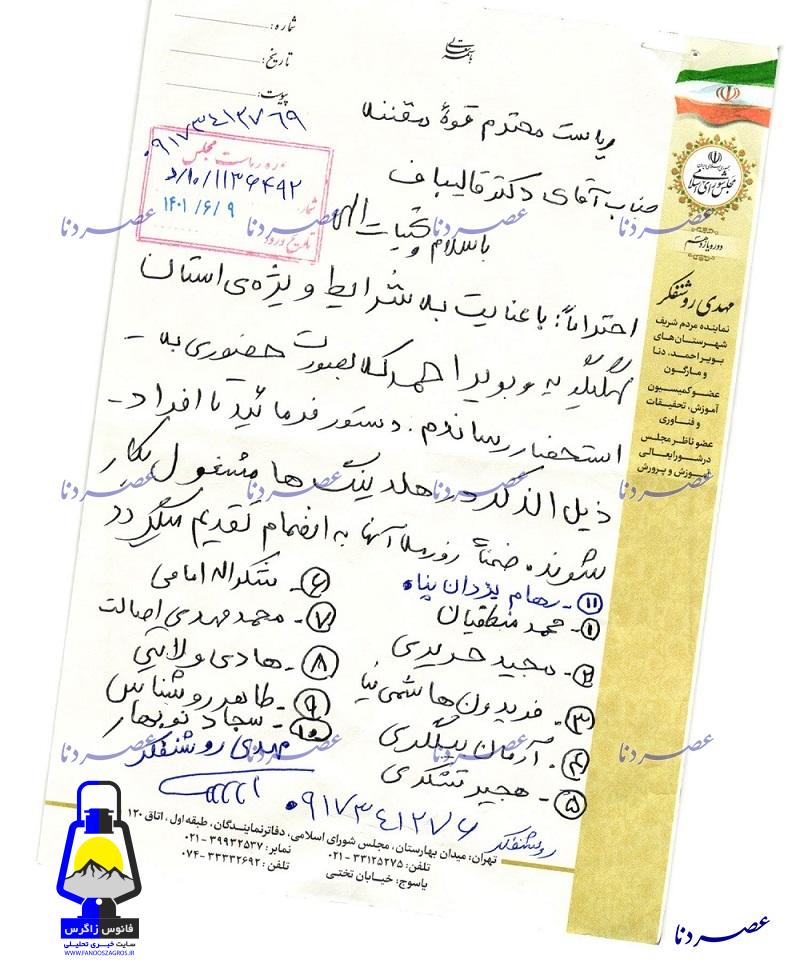 بسمه تعالی
شماره:
تاریخ:
پیوست:
۰۹۱۷۳۴۱۲۷۶۹
حوزه ریاست مجلس
شماره
د/۱۰/۱۱۳۶۴۹۲
۱۴۰۱/۶/۹
تاریخ ورود
ریاست محترم قوهٔ مقننه
جناب آقای دکتر قالیباف
با سلام و تحیات الهی
احتراماً؛ با عنایت به شرایط ویژه‌ی استان
کهگیلویه و بویراحمد که بصورت حضوری به -
استحضار رساندم. دستور فرمائید تا افراد -
ذیل الذکر در هلدینگ ها مشغول بکار
شوند. ضمناً رزومه آنها به انضمام تقدیم میگردد
۱۱- رهام یزدان پناه
۱- محمد منطقیان
۲- مجید حریری
۳- فریدون هاشمی نیا
۴- آرمان بیگلری
۵- هجیر تشکری
۶- شکراله امامی
۷- محمد مهدی اصالت
۸- هادی ولایتی
۹- طاهر روشناس
۱۰- سجاد نوبهار
مهدی روشنفکر
روشنفکر ۰۹۱۷۳۴۱۲۷۶
جمهوری اسلامی ایران
مجلس شورای اسلامی
دوره یازدهم
مهدی روشنفکر
نماینده مردم شریف
شهرستان‌های
بویراحمد، دنا
و مارگون
عضو کمیسیون
آموزش، تحقیقات
و فناوری
عضو ناظر مجلس
در شورایعالی
آموزش و پرورش
تهران: میدان بهارستان، مجلس شورای اسلامی، دفاتر نمایندگان، طبقه اول، اتاق ۱۲۰
تلفن: ۳۳۱۲۵۲۷۵-۰۲۱
نمابر: ۳۹۹۳۲۵۳۷-۰۲۱
یاسوج: خیابان تختی
تلفن: ۳۳۳۳۲۶۹۲-۰۷۴
عصر دنا عصر دنا عصر دنا عصر دنا
عصر دنا عصر دنا عصر دنا عصر دنا
عصر دنا عصر دنا عصر دنا عصر دنا
عصر دنا
فانوس زاگرس
سایت خبری تحلیلی
WWW.FANOOSZAGROS.IR